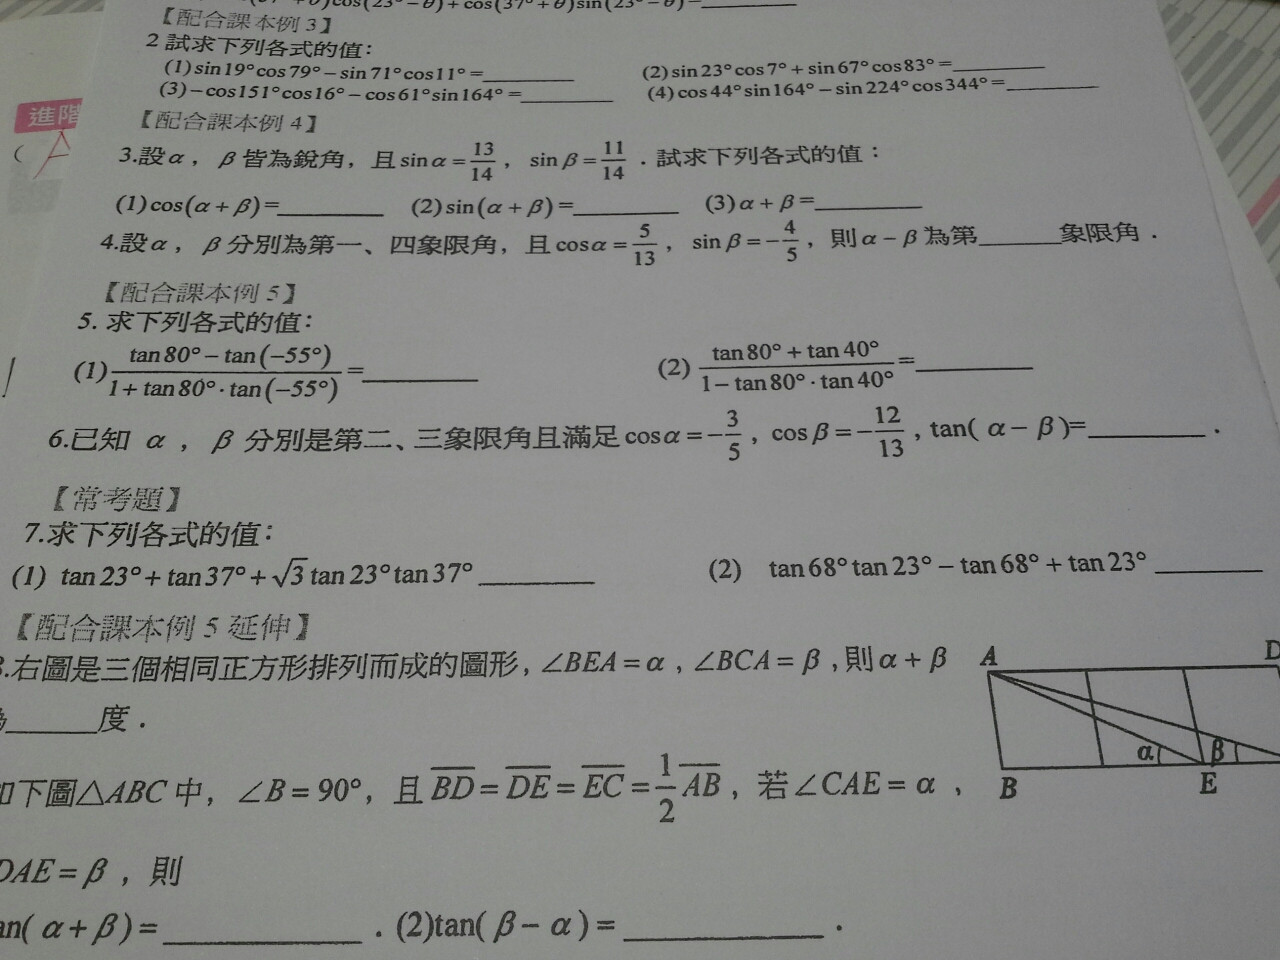 θ)cos(23°−θ)+cos(37°+θ)sin(23°−θ)=______
【配合課本例3】
2 試求下列各式的值：
(1) sin19°cos79°−sin71°cos11°=______ (2) sin23°cos7°+sin67°cos83°=______
(3) −cos151°cos16°−cos61°sin164°=______ (4) cos44°sin164°−sin224°cos344°=______
進階
【配合課本例4】
3.設α，β皆為銳角，且sinα=13/14，sinβ=11/14．試求下列各式的值：
(1) cos(α+β)=______ (2) sin(α+β)=______ (3) α+β=______
4.設α，β分別為第一、四象限角，且cosα=5/13，sinβ=−4/5，則α−β為第______象限角．
【配合課本例5】
5. 求下列各式的值：
(1) (tan80°−tan(−55°))/(1+tan80°·tan(−55°))=______ (2) (tan80°+tan40°)/(1−tan80°·tan40°)=______
6.已知 α，β 分別是第二、三象限角且滿足cosα=−3/5，cosβ=−12/13，tan( α−β )=______．
【常考題】
7.求下列各式的值：
(1) tan23°+tan37°+√3tan23°tan37°______ (2) tan68°tan23°−tan68°+tan23°______
【配合課本例5延伸】
.右圖是三個相同正方形排列而成的圖形，∠BEA=α，∠BCA=β，則α+β
______度．
A D
α β
B E
下圖△ABC中，∠B=90°，且BD=DE=EC=1/2AB，若∠CAE=α，
DAE=β，則
an( α+β)=______．(2)tan( β−α)=______．